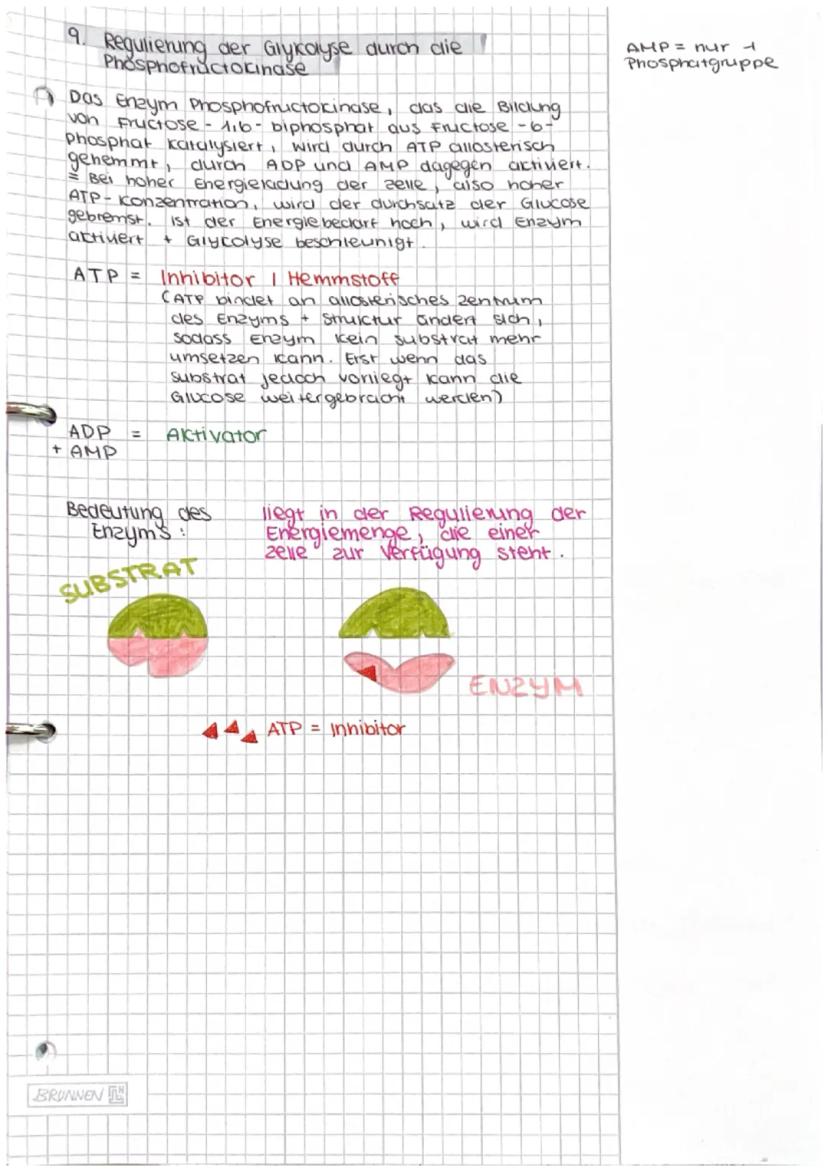 9. Regulierung der Glykolyse durch die
Phosphofructokinase
AMP = nur 1
Phosphatgruppe
Das Enzym Phosphofructokinase, das die Bildung
von Fructose-1,6-biphosphat aus Fructose-6-
phosphat katalysiert, wird durch ATP allosterisch
gehemmt, durch ADP und AMP dagegen activert.
= Bei hoher Energieladung der Zelle, also hoher
ATP-Konzentration, wird der Durchsatz der Glucose
gebremst. Ist der Energiebedarf hoch, wird Enzym
activert + Glycolyse beschleunigt.
ATP = Inhibitor / Hemmstoff
(ATP bindet an allosterisches Zentrum
des Enzyms + Struktur ändert sich,
sodass Enzym kein Substrat mehr
umsetzen kann. Erst wenn das
Substrat jedoch vorliegt kann die
Glucose weitergebracht werden)
ADP = Aktivator
+ AMP
Bedeutung des liegt in der Regulierung der
Enzyms: Energiemenge, die einer
Zelle zur Verfügung steht.
SUBSTRAT
ENZYM
ATP = Inhibitor
BRUNNEN